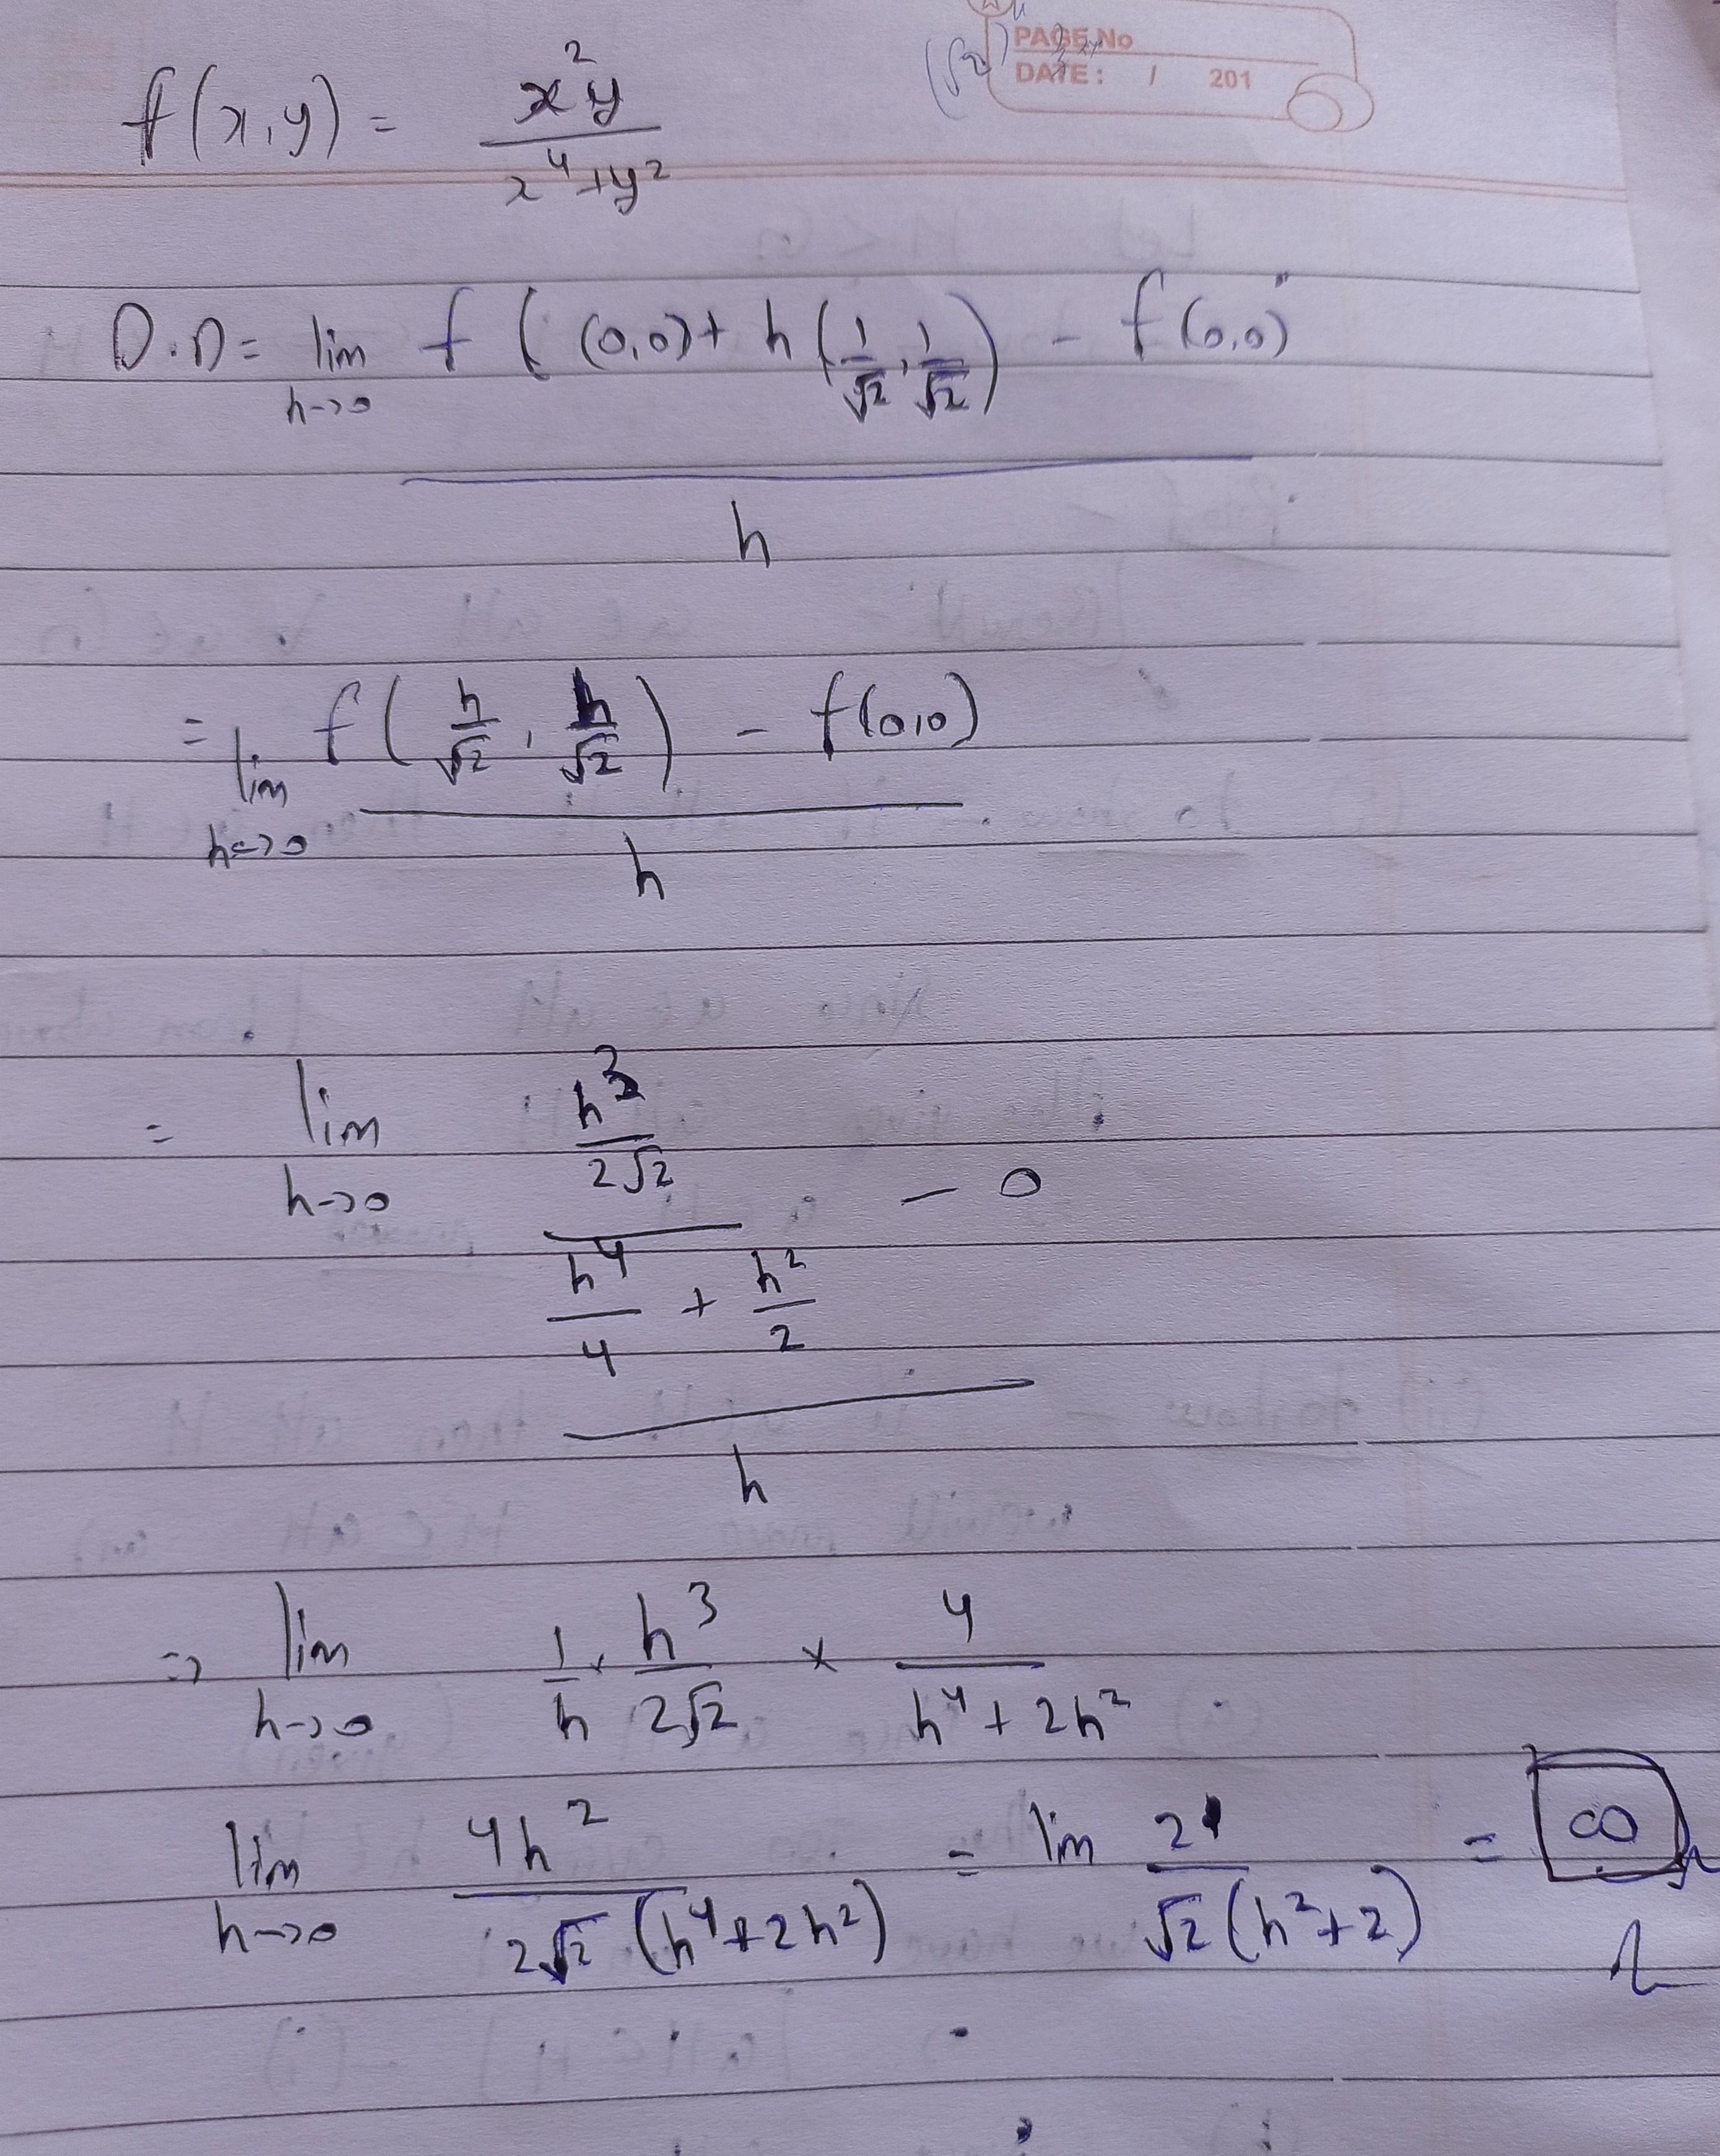 PAGE No
DATE: / 201
f(x,y) = x²y / x⁴+y²
D.D = lim h->0 f ( (0,0) + h (1/√2, 1/√2) - f(0,0) / h
= lim h->0 f( h/√2 , h/√2 ) - f(0,0) / h
= lim h->0 h³/2√2 / h⁴/4 + h²/2 - 0 / h
=> lim h->0 1/h × h³/2√2 × 4/h⁴+2h²
lim h->0 4h² / 2√2 (h⁴+2h²) = lim 2 / √2 (h²+2) = ∞